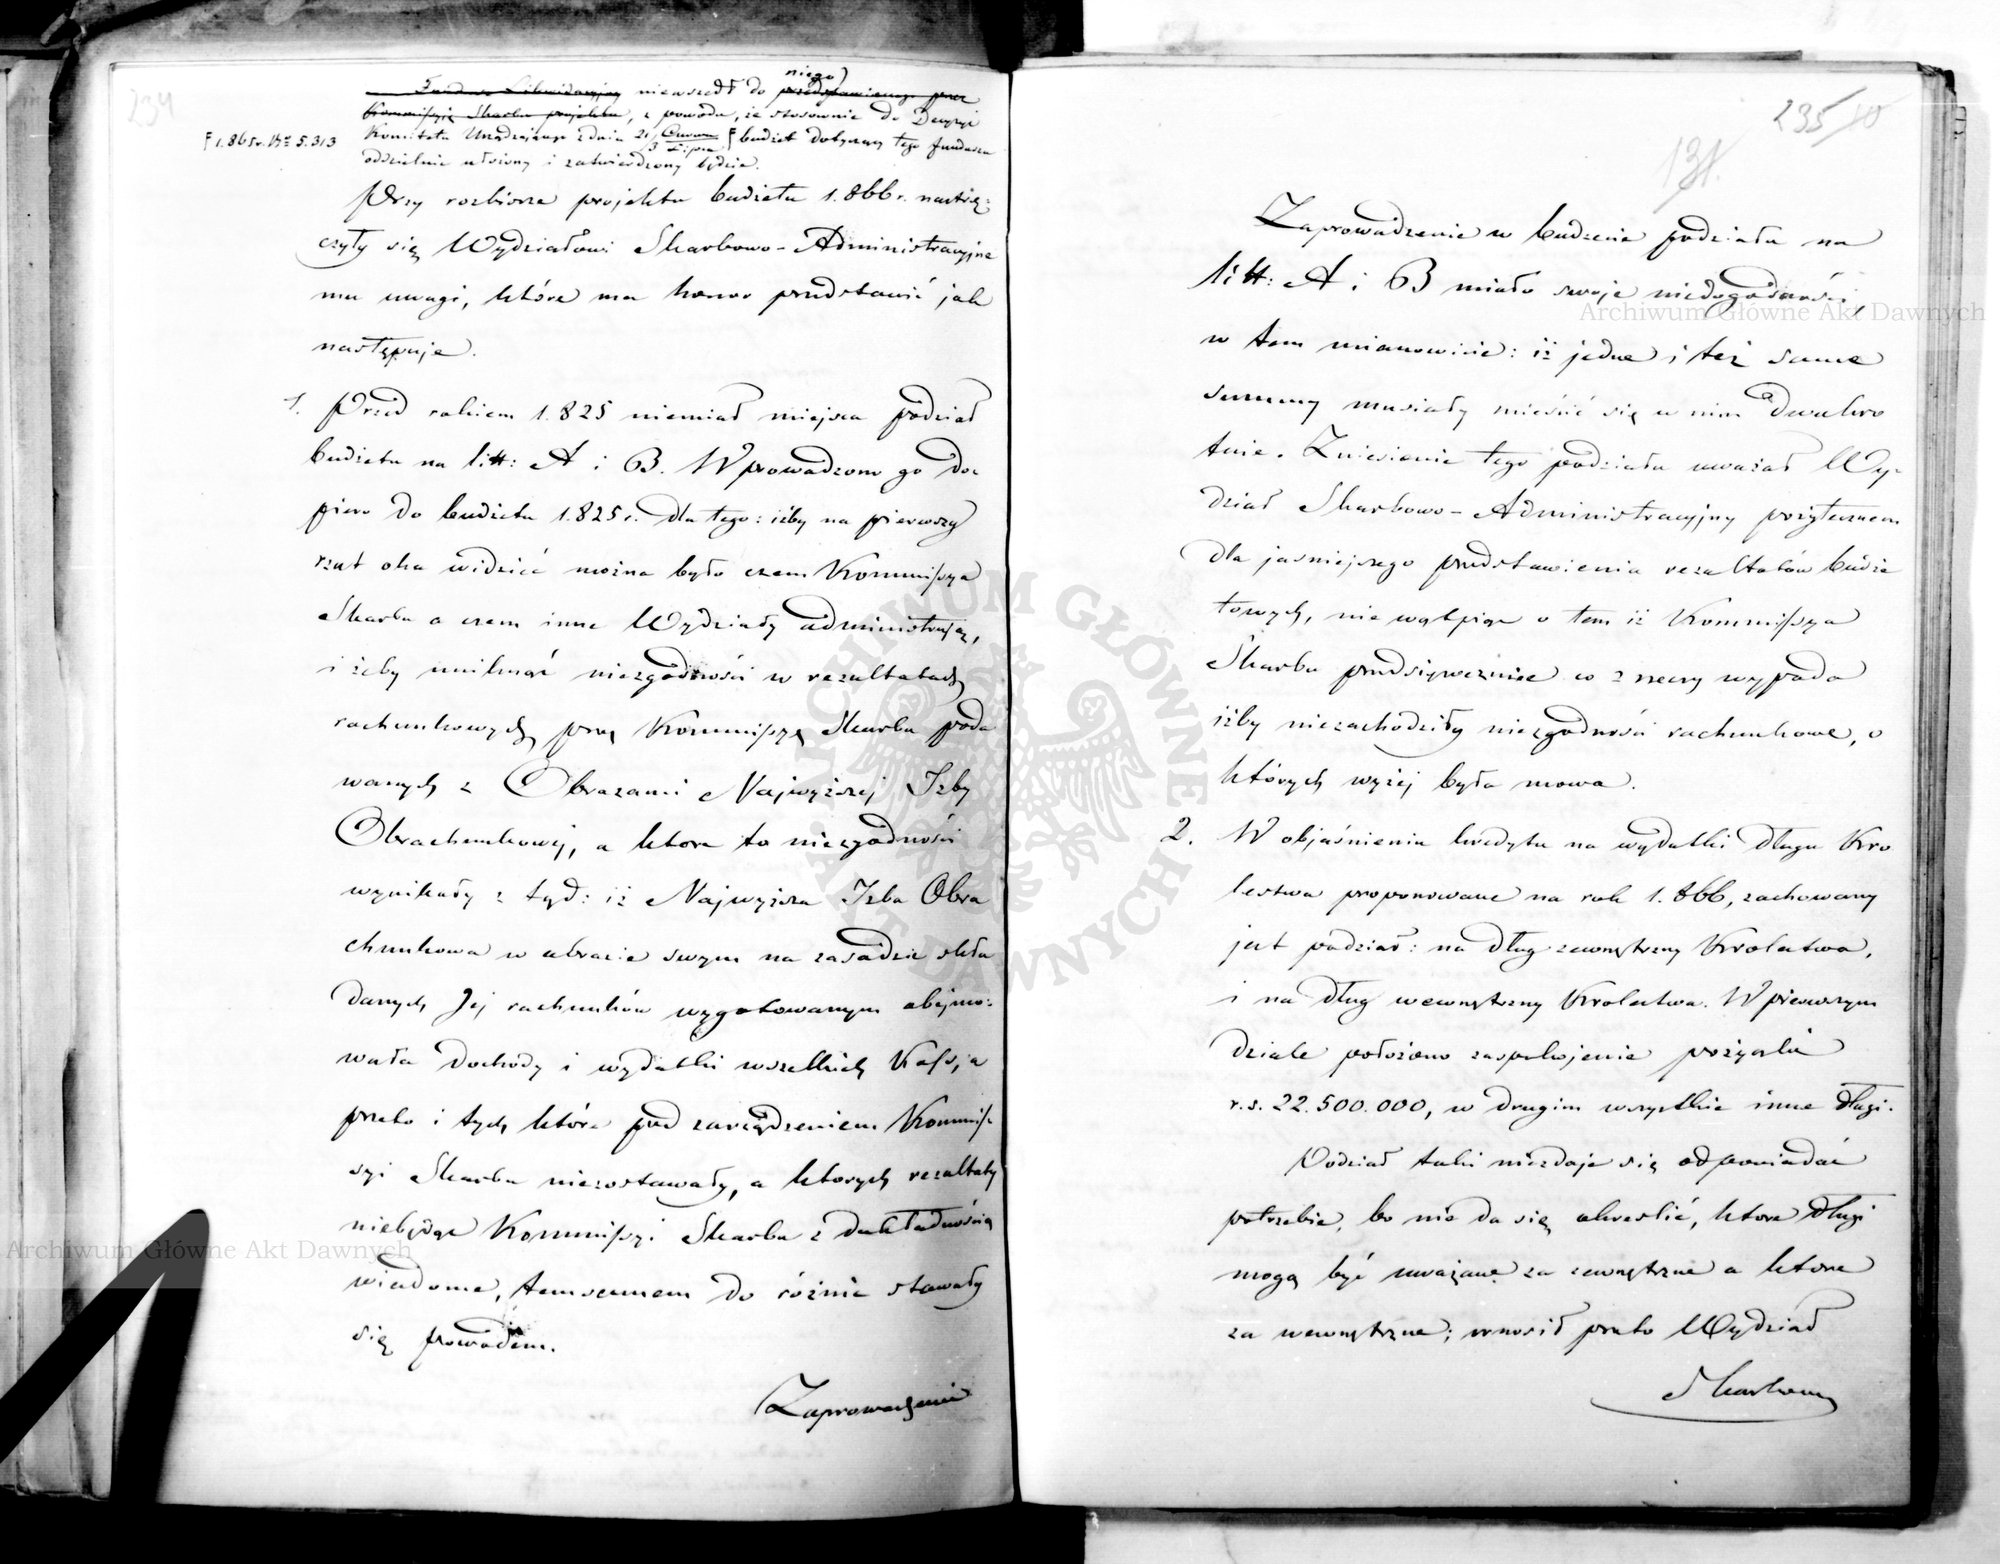 234
niego
Fundusz Likwidacyjny niewszedł do przedstawionego przez
Kommissyję Skarbu projektu, z powodu, że stosownie do Decyzyi
Komitetu Urządzającego z dnia 21 Czerwca/3 Lipca F budżet dotyczący tego funduszu
F 1.865 r. Nr 5.313
oddzielnie ułożony i zatwierdzony będzie.
Przy rozbiorze projektu budżetu 1.866 r. nastrę=
czyły się Wydziałowi Skarbowo-Administracyjne
mu uwagi, które ma honor przedstawić jak
następuje.
1. Przed rokiem 1.825 niemiał miejsca podział
budżetu na litt: A i B. Wprowadzono go do=
piero do budżetu 1.825 r. dla tego: iżby na pierwszy
rzut oka widzieć można było czem Kommissya
Skarbu a czem inne Wydziały administrują,
i żeby uniknąć niezgodności w rezultatach
rachunkowych przez Kommissyą Skarbu poda
wanych z Obrazami Najwyższej Izby
Obrachunkowej, a które to niezgodności
wynikały z tąd: iż Najwyższa Izba Obra
chunkowa w obrazie swym na zasadzie skła
danych Jej rachunków wygotowanym obejmo=
wała dochody i wydatki wszelkich Kass, a
przeto i tych które pod zarządzeniem Kommis
syi Skarbu niezostawały, a których rezultaty
niebędąc Kommissyi Skarbu z dokładnością
wiadome, temsamem do różnic stawały
się powodem.
Zaprowadzenie
235
131.
Zaprowadzenie w budżecie podziału na
litt: A i B miało swoje niedogodności,
w tem mianowicie: iż jedne i też same
summy musiały mieścić się w nim dwukro
tnie. Zniesienie tego podziału uważał Wy=
dział Skarbowo-Administracyjny pożytecznem
dla jaśniejszego przedstawienia rezultatów budże
towych, nie wątpiąc o tem iż Kommissya
Skarbu przedsięweźmie co z rzeczy wypada
iżby niezachodziły niezgodności rachunkowe, o
których wyżej była mowa.
2. W objaśnieniu kredytu na wydatki długu Kró
lestwa proponowane na rok 1.866, zachowany
jest podział: na dług zewnętrzny Królestwa,
i na dług wewnętrzny Królestwa. W pierwszym
dziale położono zaspokojenie pożyczki
r.s. 22.500.000, w drugim wszystkie inne długi.
Podział taki niezdaje się odpowiadać
potrzebie, bo nie da się określić, które długi
mogą być uważane za zewnętrzne a które
za wewnętrzne; wnosił przeto Wydział
Skarbowy
Archiwum Główne Akt Dawnych
Archiwum Główne Akt Dawnych
ARCHIWUM GŁÓWNE AKT DAWNYCH